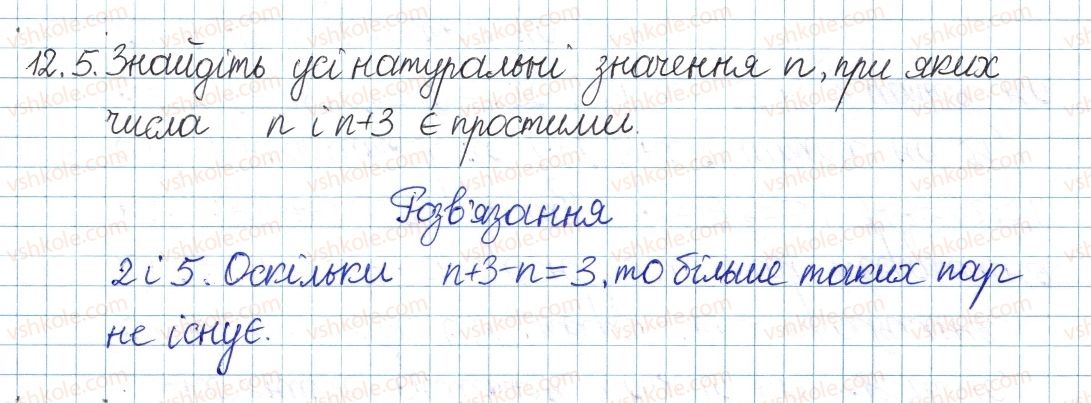 12.5. Знайдіть усі натуральні значення n, при яких
числа n і n+3 є простими.
Розв'язання
2 і 5. Оскільки n+3-n=3, то більше таких пар
не існує.